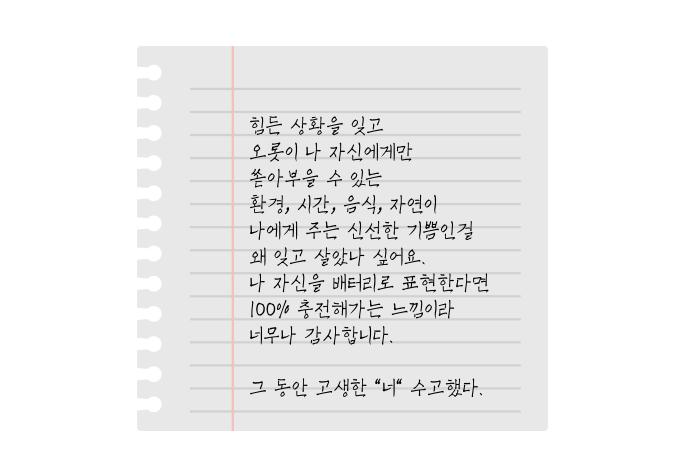 힘든 상황을 잊고
오롯이 나 자신에게만
쏟아부을 수 있는
환경, 시간, 음식, 자연이
나에게 주는 신선한 기쁨인걸
왜 잊고 살았나 싶어요.
나 자신을 배터리로 표현한다면
100% 충전해가는 느낌이라
너무나 감사합니다.
그 동안 고생한 “너“ 수고했다.